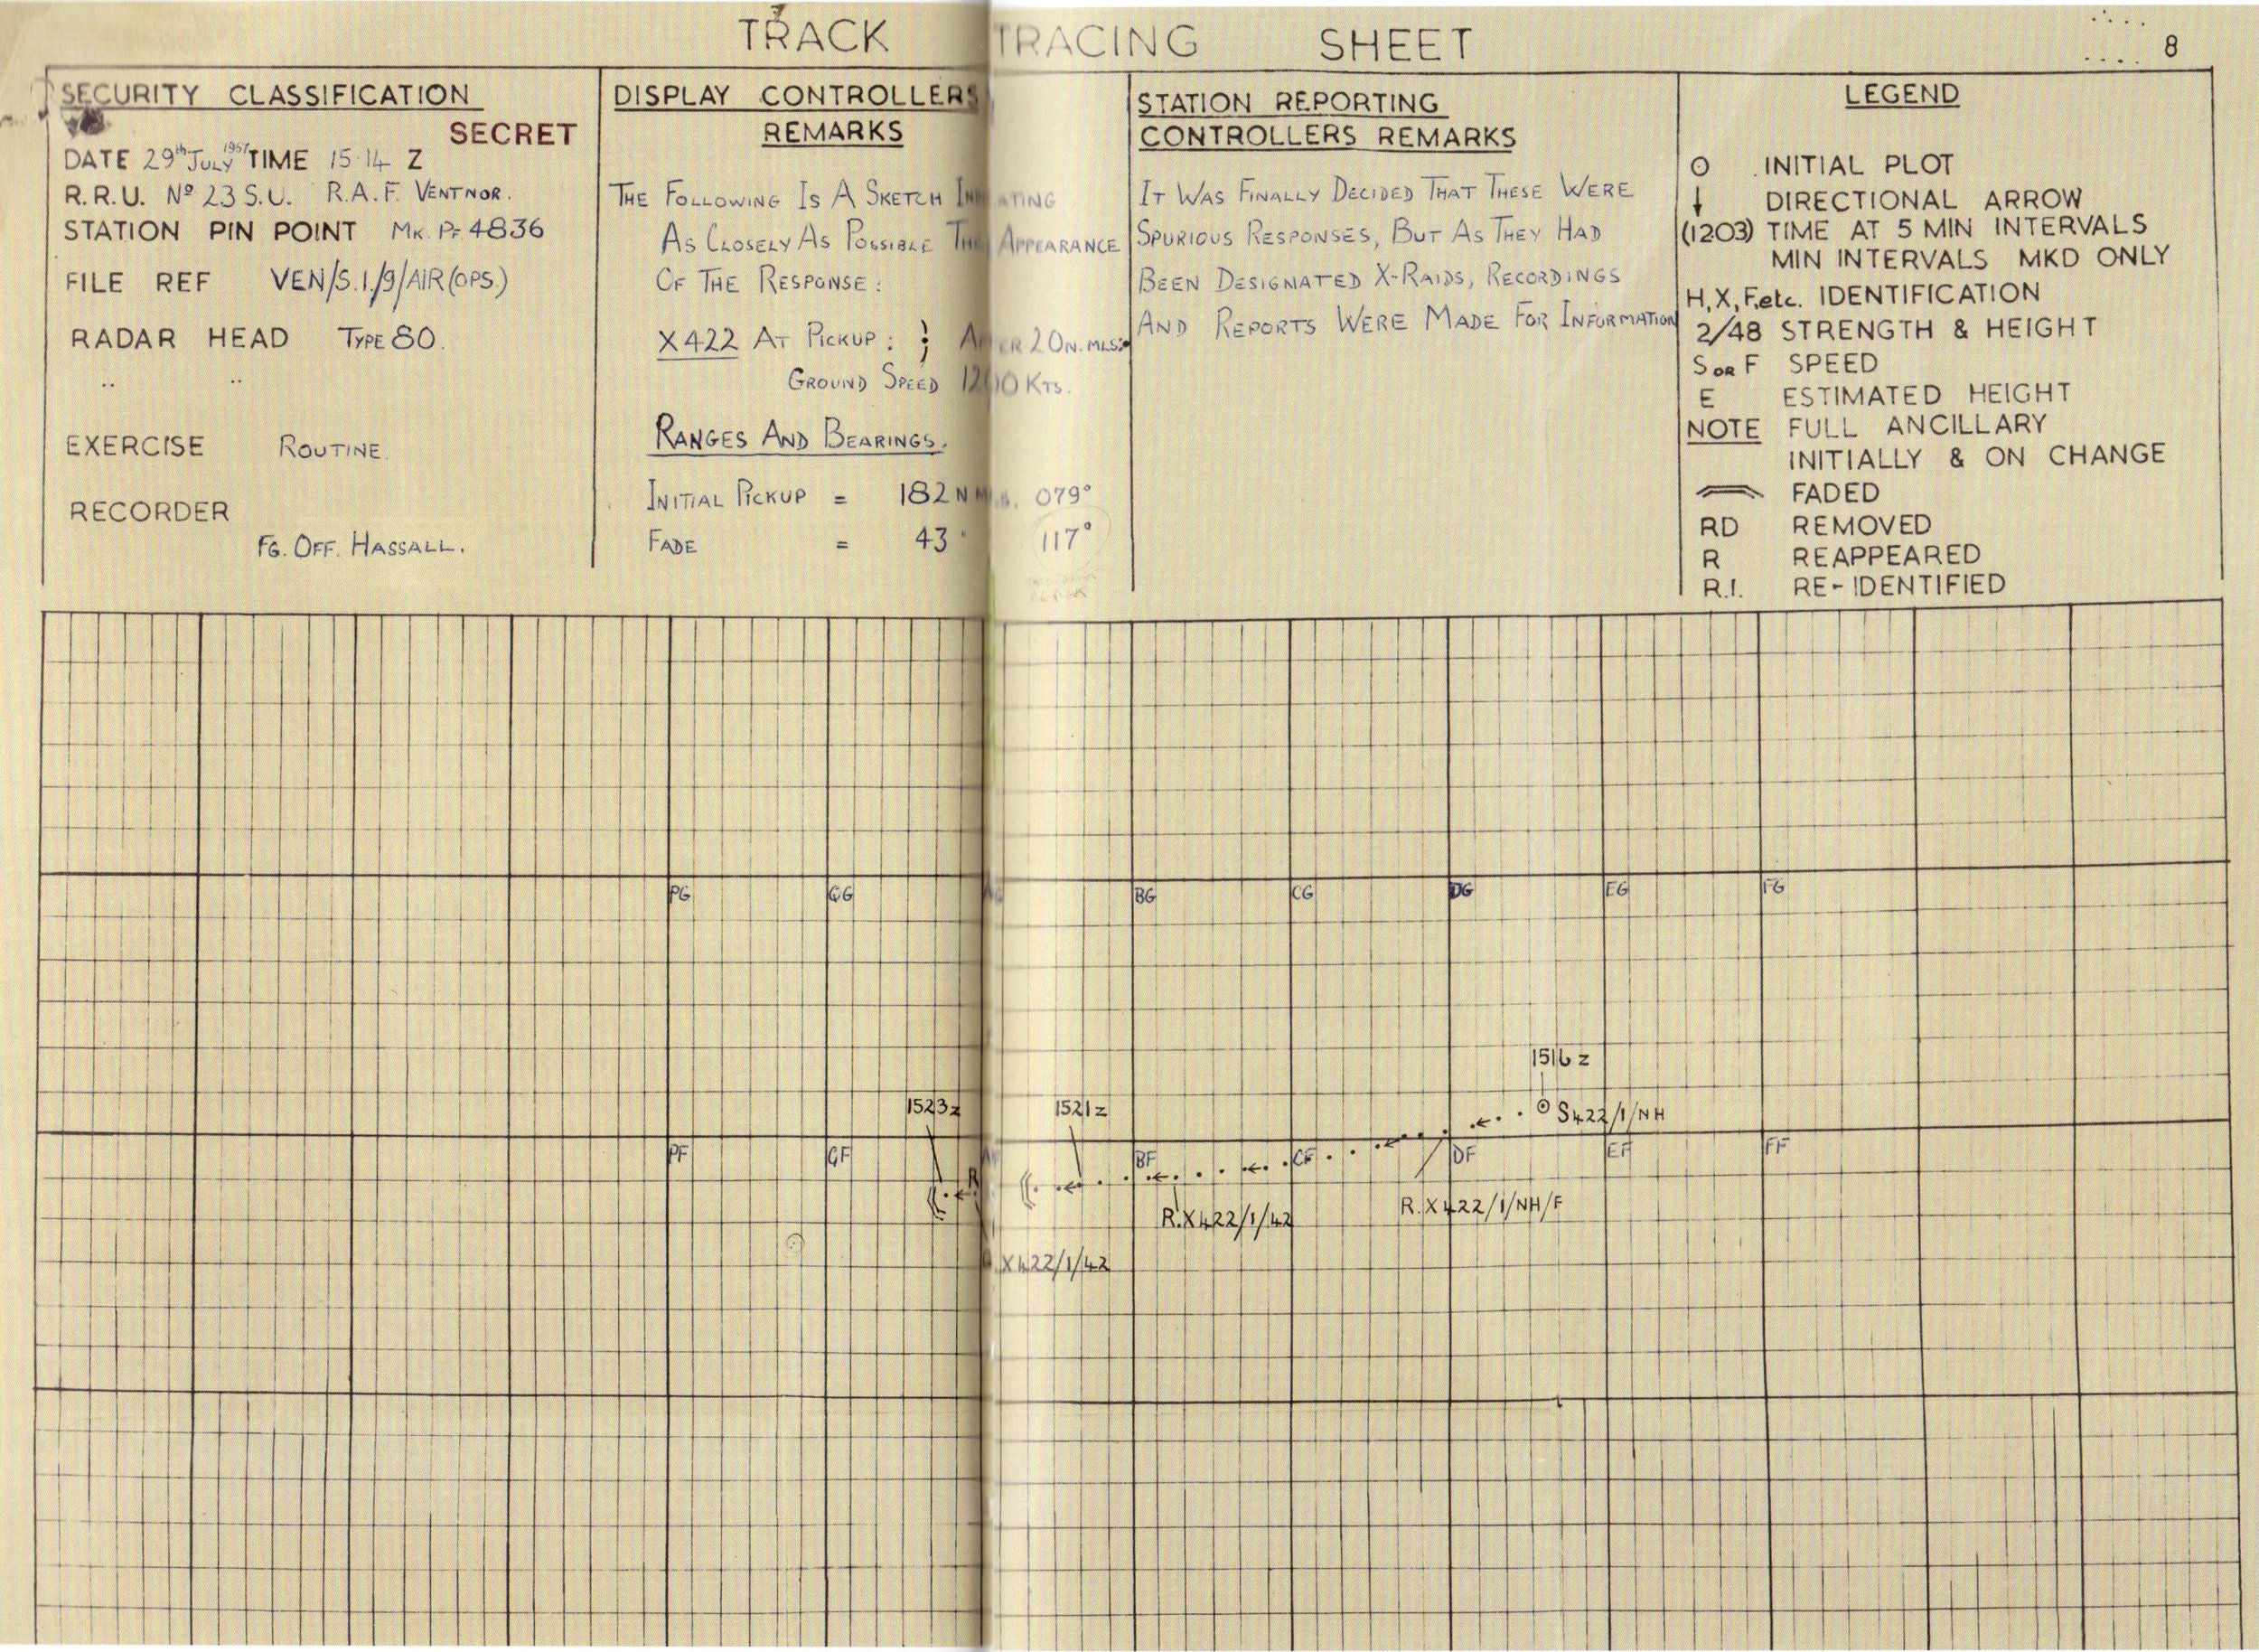 TRACK TRACING SHEET
8
SECURITY CLASSIFICATION
SECRET
DATE 29th July 1957 TIME 15·14 Z
R.R.U. No 23 S.U. R.A.F. VENTNOR.
STATION PIN POINT MK. PF 4836
FILE REF VEN/S.1./9/AIR (OPS.)
RADAR HEAD TYPE 80.
.. ..
EXERCISE ROUTINE.
RECORDER
FG. OFF. HASSALL.
DISPLAY CONTROLLERS
REMARKS
THE FOLLOWING IS A SKETCH
AS CLOSELY AS POSSIBLE THE APPEARANCE
OF THE RESPONSE :
X422 AT PICKUP : 20 N. MLS:
GROUND SPEED 1200 KTS.
RANGES AND BEARINGS.
INITIAL PICKUP = 182 079°
FADE = 43 117°
STATION REPORTING
CONTROLLERS REMARKS
IT WAS FINALLY DECIDED THAT THESE WERE
SPURIOUS RESPONSES, BUT AS THEY HAD
BEEN DESIGNATED X-RAIDS, RECORDINGS
AND REPORTS WERE MADE FOR INFORMATION
LEGEND
INITIAL PLOT
DIRECTIONAL ARROW
(1203) TIME AT 5 MIN INTERVALS
MIN INTERVALS MKD ONLY
H, X, F, etc. IDENTIFICATION
2/48 STRENGTH & HEIGHT
S OR F SPEED
E ESTIMATED HEIGHT
NOTE FULL ANCILLARY
INITIALLY & ON CHANGE
FADED
RD REMOVED
R REAPPEARED
R.I. RE-IDENTIFIED
PG GG BG CG DG EG FG
1516 z
1523 z 1521 z S422/1/NH
PF GF BF CF DF EF FF
R
R.X422/1/42 R.X422/1/NH/F
X422/1/42